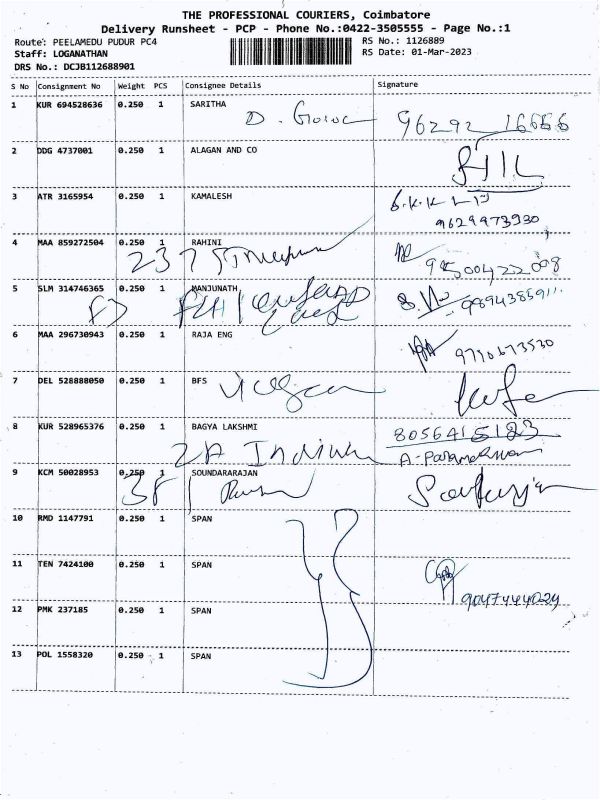 THE PROFESSIONAL COURIERS, Coimbatore
Delivery Runsheet - PCP - Phone No.:0422-3505555 - Page No.:1
Route: PEELAMEDU PUDUR PC4
RS No.: 1126889
Staff: LOGANATHAN
RS Date: 01-Mar-2023
DRS No.: DCJB112688901
S No Consignment No Weight PCS Consignee Details Signature
1 KUR 694528636 0.250 1 SARITHA
D. 96292 16666
2 DDG 4737001 0.250 1 ALAGAN AND CO
3 ATR 3165954 0.250 1 KAMALESH
9629973930
4 MAA 859272504 0.250 1 RAHINI
237
5 SLM 314746365 0.250 1 MANJUNATH
6 MAA 296730943 0.250 1 RAJA ENG
9790673530
7 DEL 528888050 0.250 1 BFS
8 KUR 528965376 0.250 1 BAGYA LAKSHMI
2A
9 KCM 50028953 0.250 1 SOUNDARARAJAN
10 RMD 1147791 0.250 1 SPAN
11 TEN 7424100 0.250 1 SPAN
9047444029
12 PMK 237185 0.250 1 SPAN
13 POL 1558320 0.250 1 SPAN